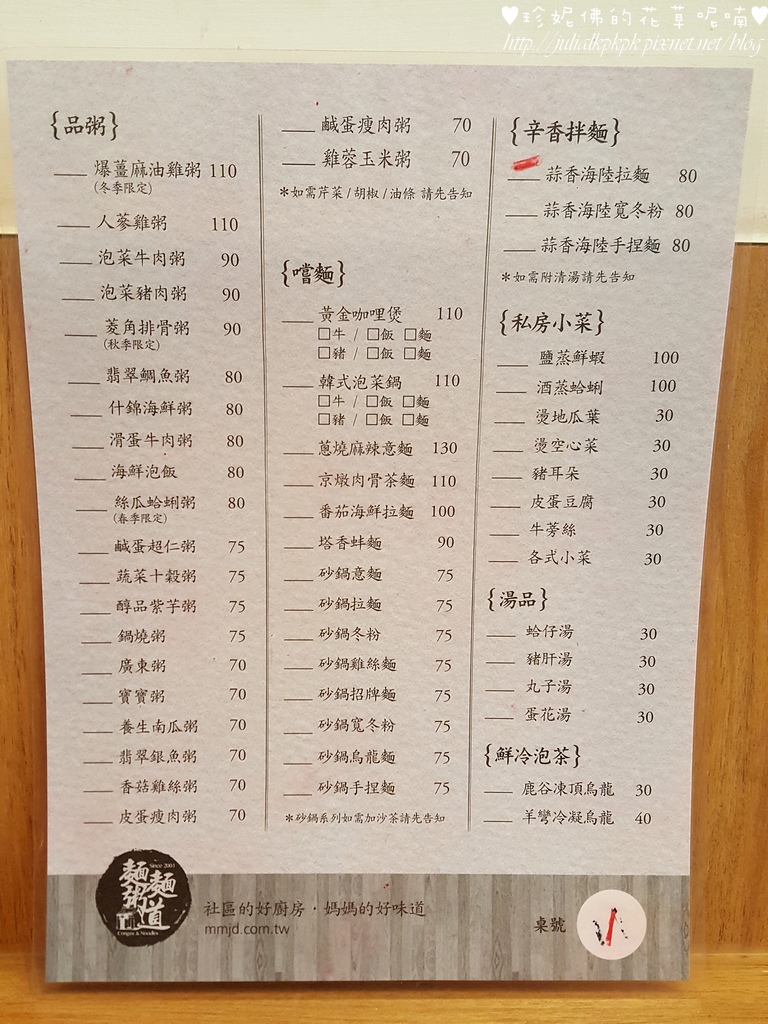 ♥珍妮佛的花草呢喃♥
http://julialkpkpk.pixnet.net/blog
{品粥}
爆薑麻油雞粥 110
(冬季限定)
人蔘雞粥 110
泡菜牛肉粥 90
泡菜豬肉粥 90
菱角排骨粥 90
(秋季限定)
翡翠鯛魚粥 80
什錦海鮮粥 80
滑蛋牛肉粥 80
海鮮泡飯 80
絲瓜蛤蜊粥 80
(春季限定)
鹹蛋超仁粥 75
蔬菜十穀粥 75
醇品紫芋粥 75
鍋燒粥 75
廣東粥 70
寶寶粥 70
養生南瓜粥 70
翡翠銀魚粥 70
香菇雞絲粥 70
皮蛋瘦肉粥 70
鹹蛋瘦肉粥 70
雞蓉玉米粥 70
*如需芹菜/胡椒/油條 請先告知
{嚐麵}
黃金咖哩煲 110
□牛 / □飯 □麵
□豬 / □飯 □麵
韓式泡菜鍋 110
□牛 / □飯 □麵
□豬 / □飯 □麵
蔥燒麻辣意麵 130
京燉肉骨茶麵 110
番茄海鮮拉麵 100
塔香蚌麵 90
砂鍋意麵 75
砂鍋拉麵 75
砂鍋冬粉 75
砂鍋雞絲麵 75
砂鍋招牌麵 75
砂鍋寬冬粉 75
砂鍋烏龍麵 75
砂鍋手捏麵 75
*砂鍋系列如需加沙茶請先告知
{辛香拌麵}
蒜香海陸拉麵 80
蒜香海陸寬冬粉 80
蒜香海陸手捏麵 80
*如需附清湯請先告知
{私房小菜}
鹽蒸鮮蝦 100
酒蒸蛤蜊 100
燙地瓜葉 30
燙空心菜 30
豬耳朵 30
皮蛋豆腐 30
牛蒡絲 30
各式小菜 30
{湯品}
蛤仔湯 30
豬肝湯 30
丸子湯 30
蛋花湯 30
{鮮冷泡茶}
鹿谷凍頂烏龍 30
羊彎冷凝烏龍 40
Since 2003
麵麵
粥道
Congee & Noodles
社區的好廚房·媽媽的好味道
mmjd.com.tw
桌號